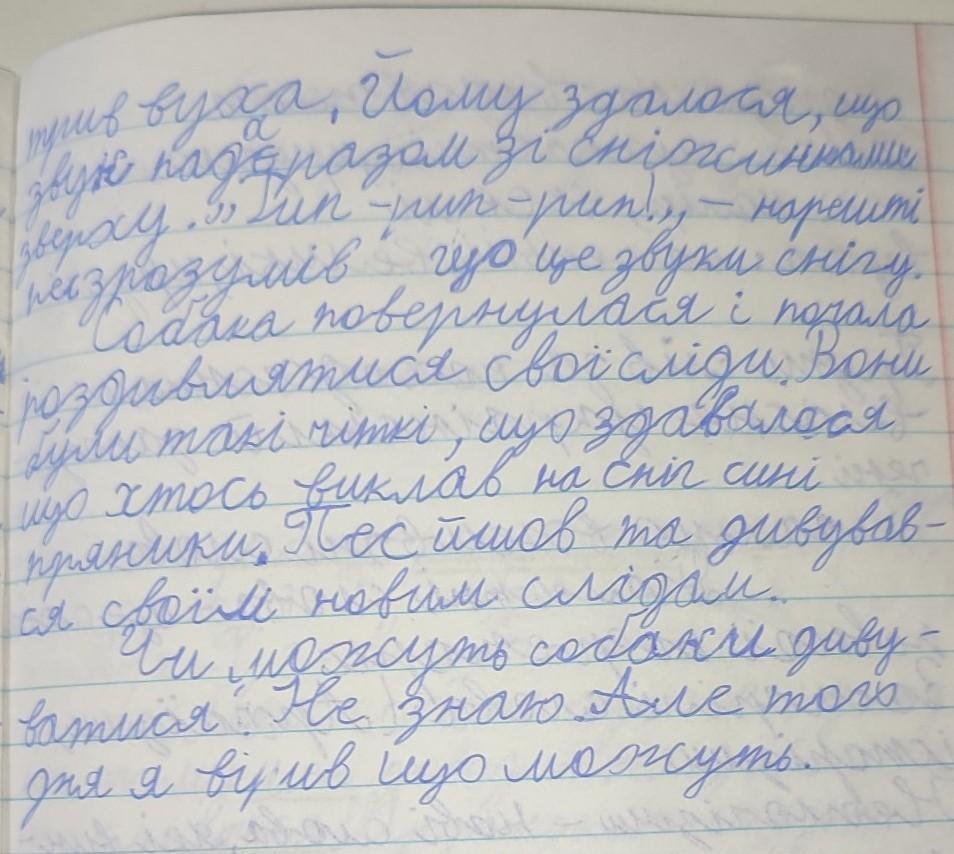 трив вуха. Йому здалося, що
звук падає разом зі сніжинками
зверху. „Рип-рип-рип!„ – нарешті
пес зрозумів що це звуки снігу.
Собака повернулася і почала
роздивлятися свої сліди. Вони
були такі чіткі, що здавалося
що хтось виклав на сніг сині
пряники. Пес йшов та дивував-
ся своїм новим слідам.
Чи можуть собаки диву-
ватися? Не знаю. Але того
дня я вірив що можуть.